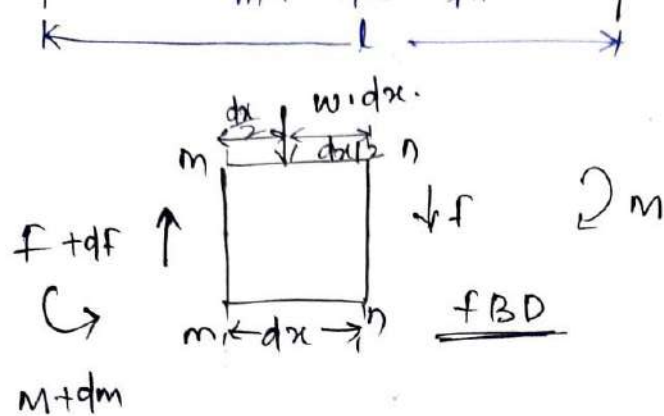 l
dx/2 w.dx.
m dx/2 n
F + dF f M
m dx n FBD
M+dm